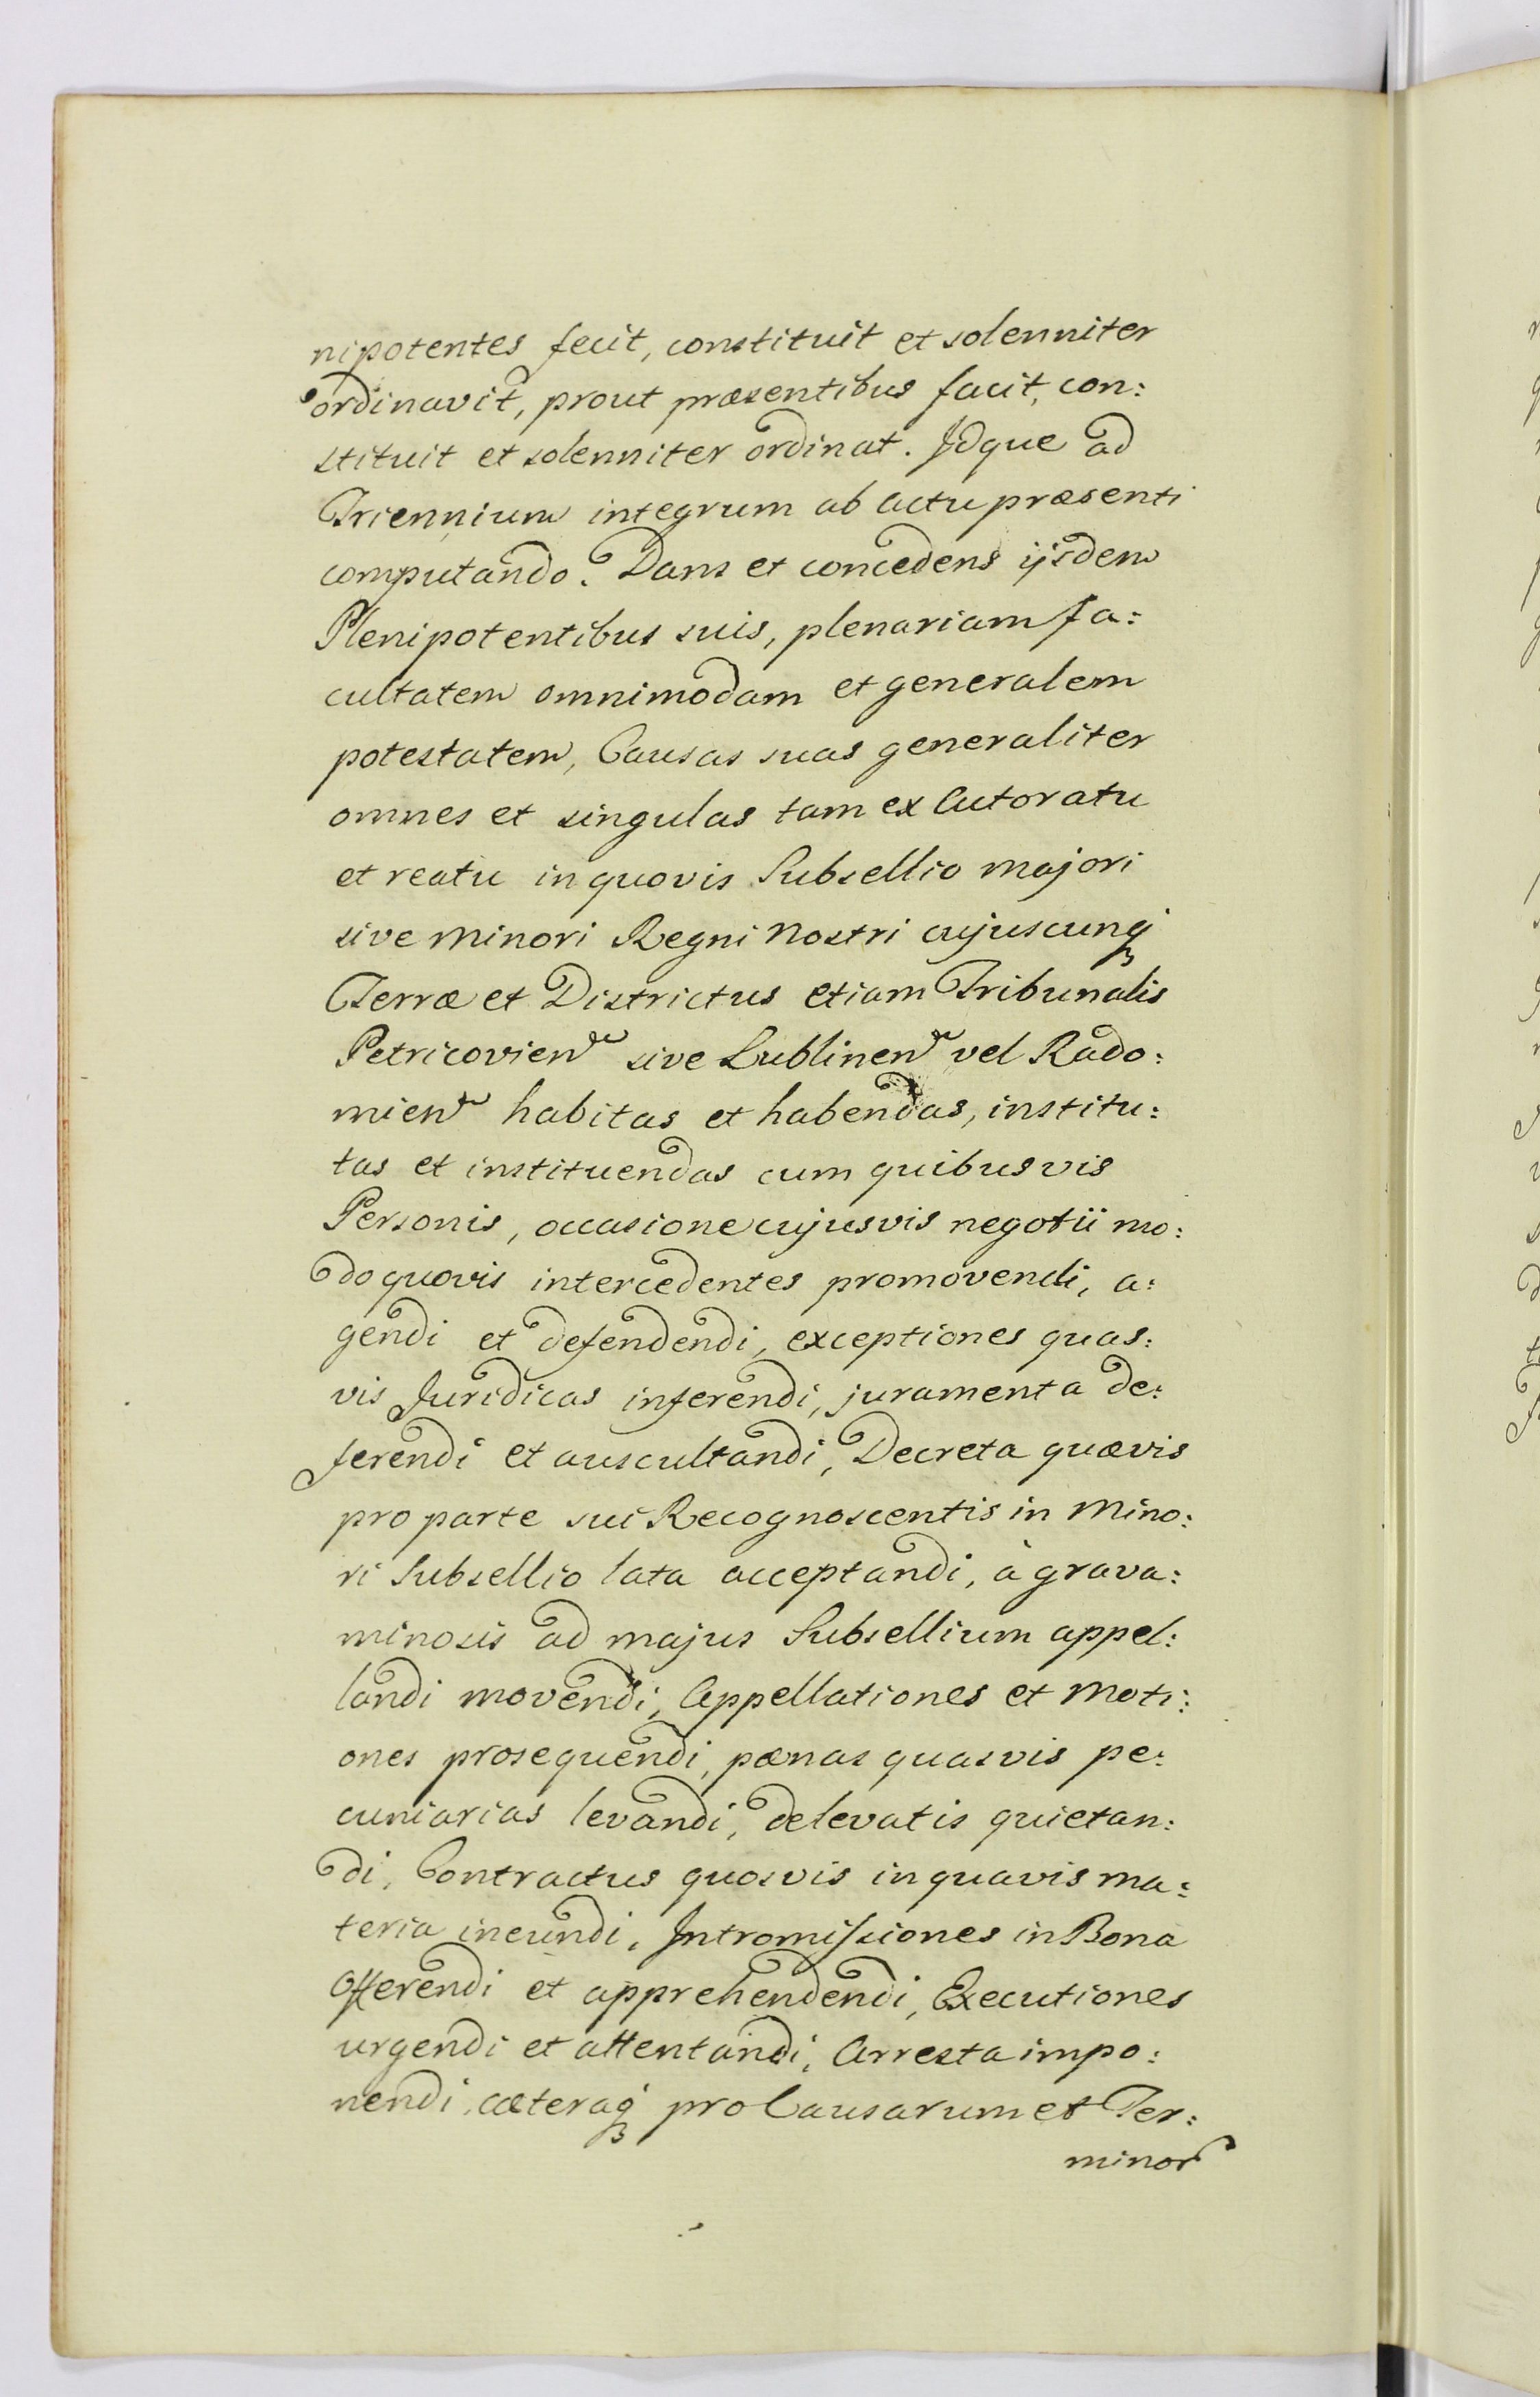 nipotentes fecit, constituit et solenniter
ordinavit, prout præsentibus facit, con:
stituit et solenniter ordinat. Idque ad
Triennium integrum ab actu præsenti
computando. Dans et concedens ijsdem
Plenipotentibus suis, plenariam fa:
cultatem omnimodam et generalem
potestatem, Causas suas generaliter
omnes et singulas tam ex Actoratu
et reatu in quovis Subsellio majori
sive minori Regni nostri cujuscunq
Terræ et Districtus etiam Tribunalis
Petricovien sive Lublinen vel Rado:
mien habitas et habendas, institu:
tas et instituendas cum quibusvis
Personis, occasione cujusvis negotii mo:
do quovis intercedentes promovendi, a:
gendi et defendendi, exceptiones quas:
vis Juridicas inferendi, juramenta de:
ferendi et auscultandi, Decreta quævis
pro parte sui Recognoscentis in mino:
ri Subsellio lata acceptandi, à grava:
minosis ad majus Subsellium appel:
landi movendi, Appellationes et moti:
ones prosequendi, pænas quasvis pe:
cuniarias levandi, de levatis quietan:
di, Contractus quosvis in quavis ma:
teria ineundi, Intromissiones in Bona
offerendi et apprehendendi, Executiones
urgendi et attentandi, Arresta impo:
nendi, cæteraq pro Causarum et Ter:
minor